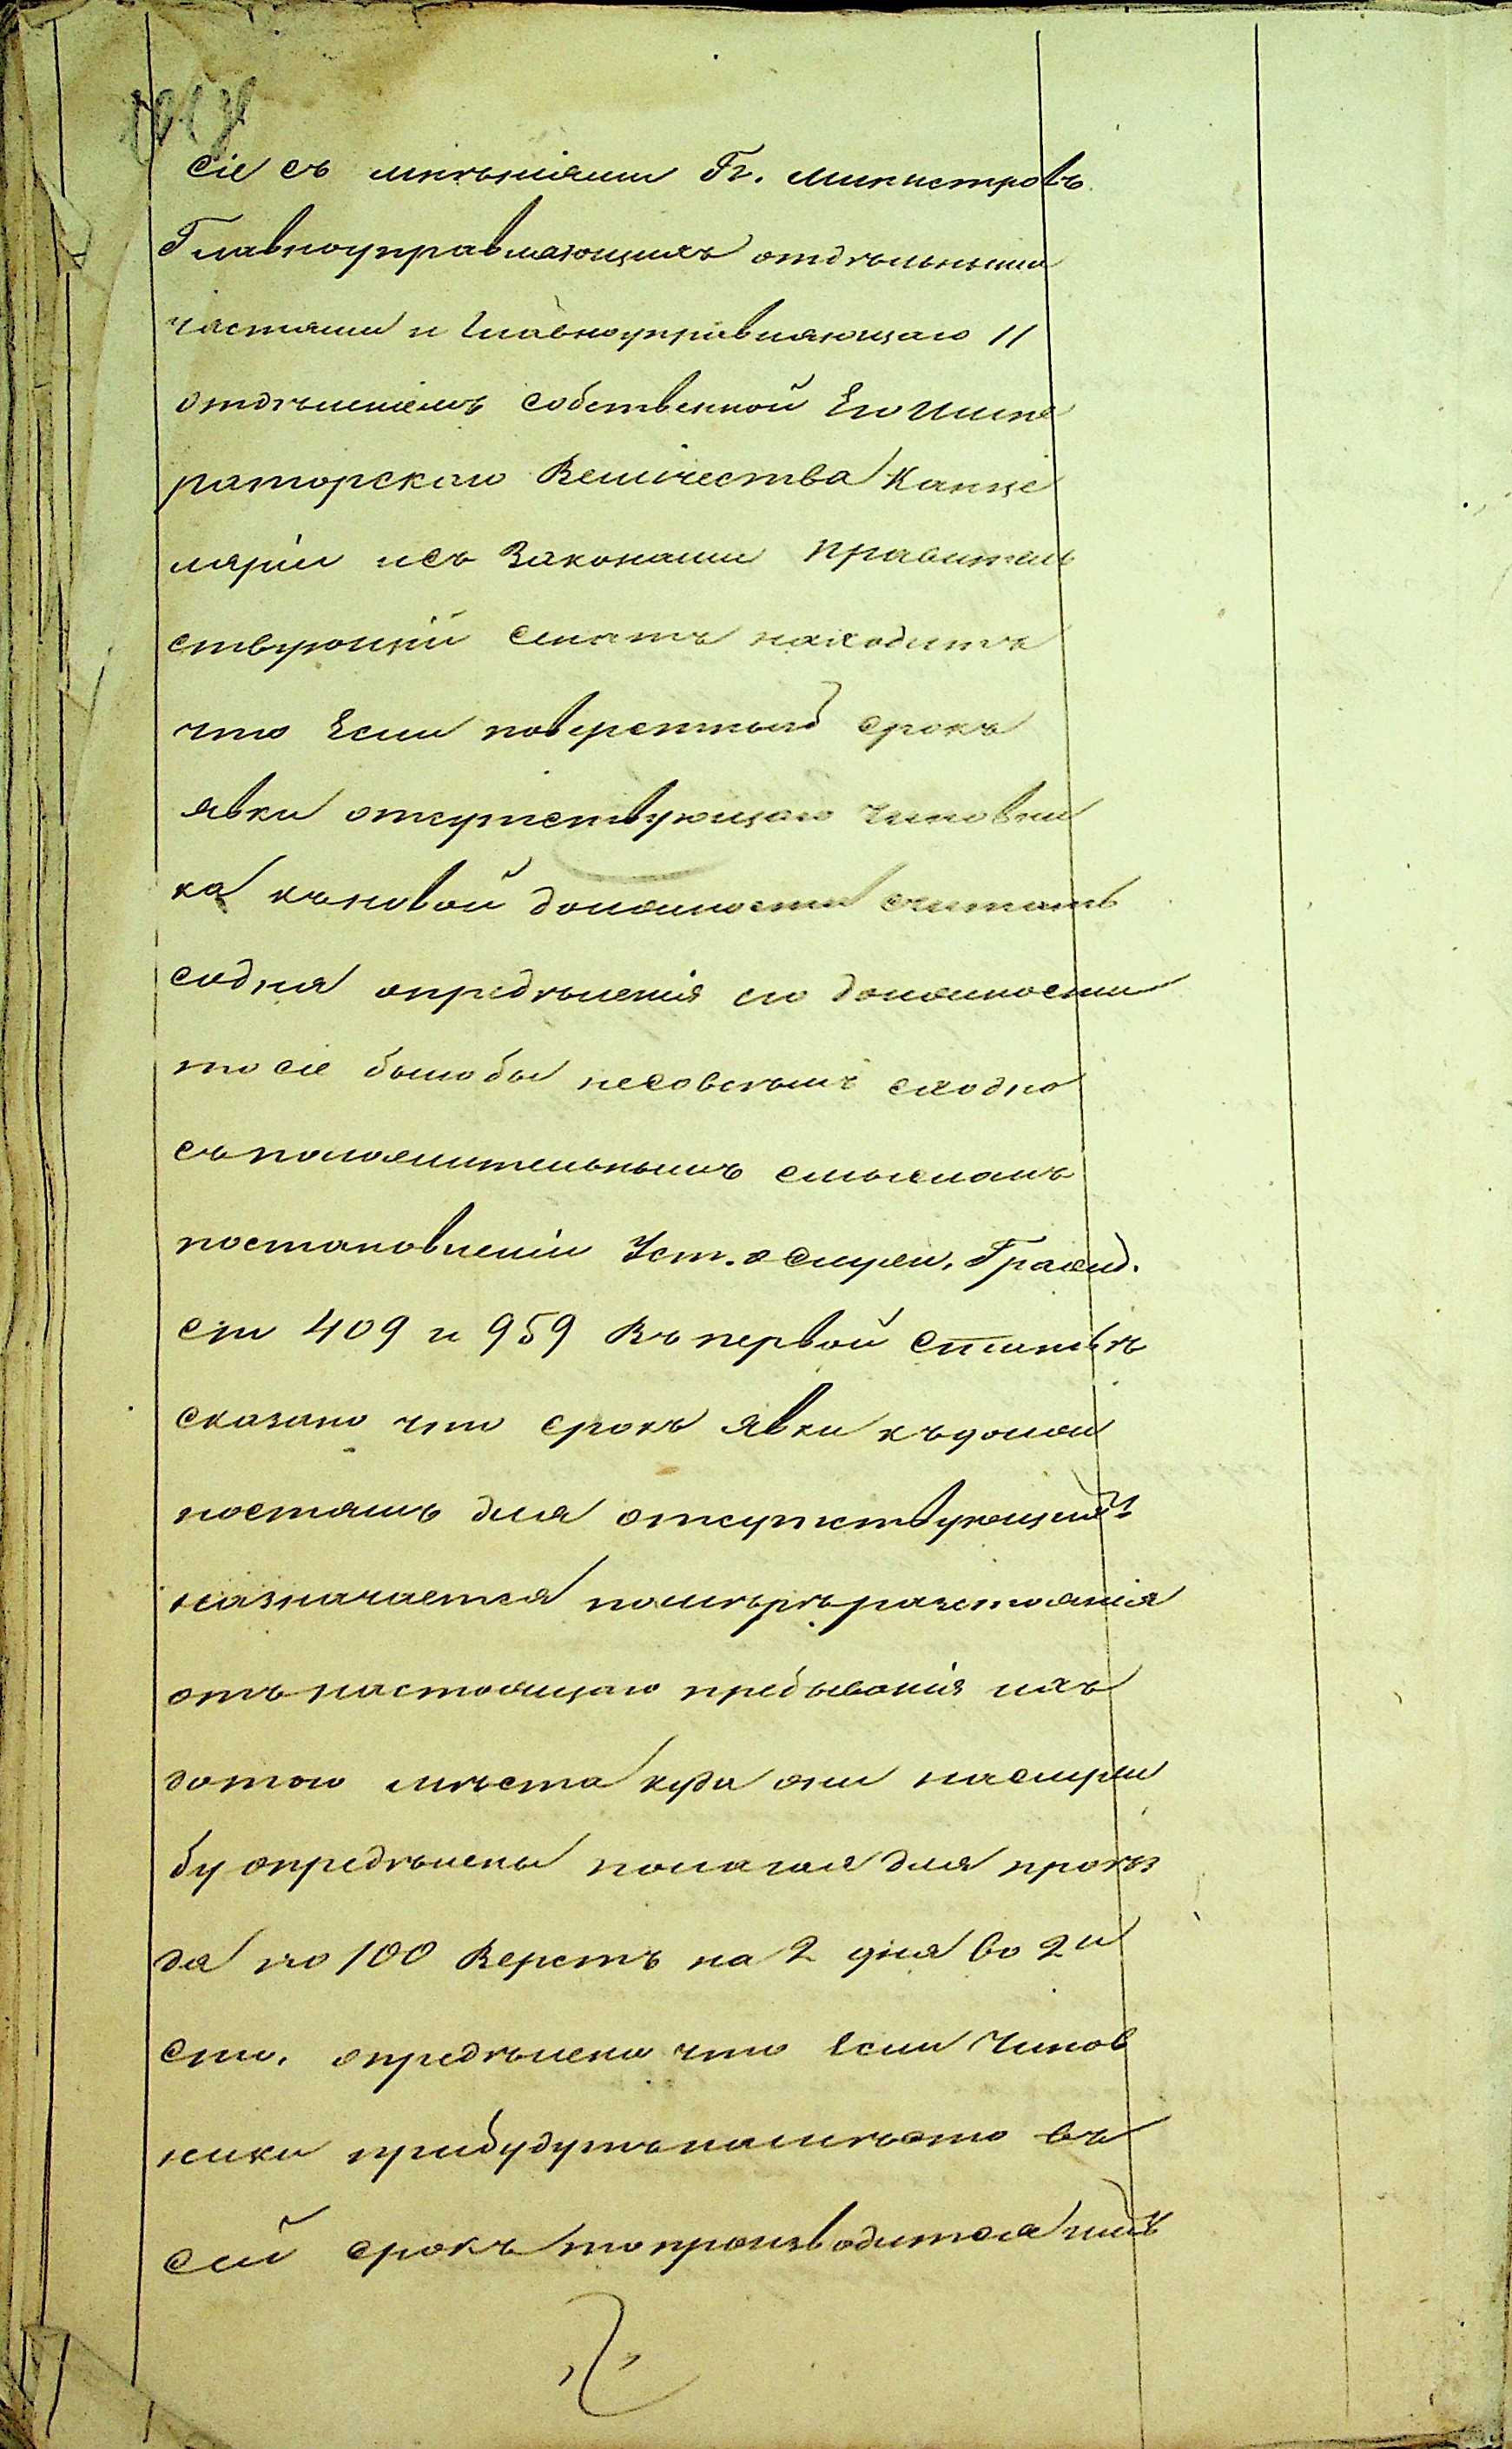 сіе съ мнѣніями Гг. министровъ
Главноуправляющихъ отдѣльными
частями и Главноуправляющаго II
отдѣленіемъ собственной Его Импе
раторскаго Величества Канце
ляріи исъ Законами Правитель
ствующій сенатъ находитъ
что Если поверстный срокъ
явки отсутствующаго чиновни
ка къновой должности считать
содня опредѣленія его должности
то сіе былобы несовсѣмъ сходно
съположительнымъ смысломъ
постановленіи Уст. о служ. Гражд.
ст 409 и 959 Въ первой статьѣ
сказано что срокъ явки къдолж
ностямъ для отсутствующихъ
назначается помѣрѣ разстоянія
отъ настоящаго пребыванія ихъ
дотого мѣста куда они наслуж
бу опредѣлены полагая для проѣз
да по 100 Верстъ на 2 дня во 2й
ст. опредѣлено что если Чинов
ники прибудутъ намѣсто въ
сей срокъ то производится имъ